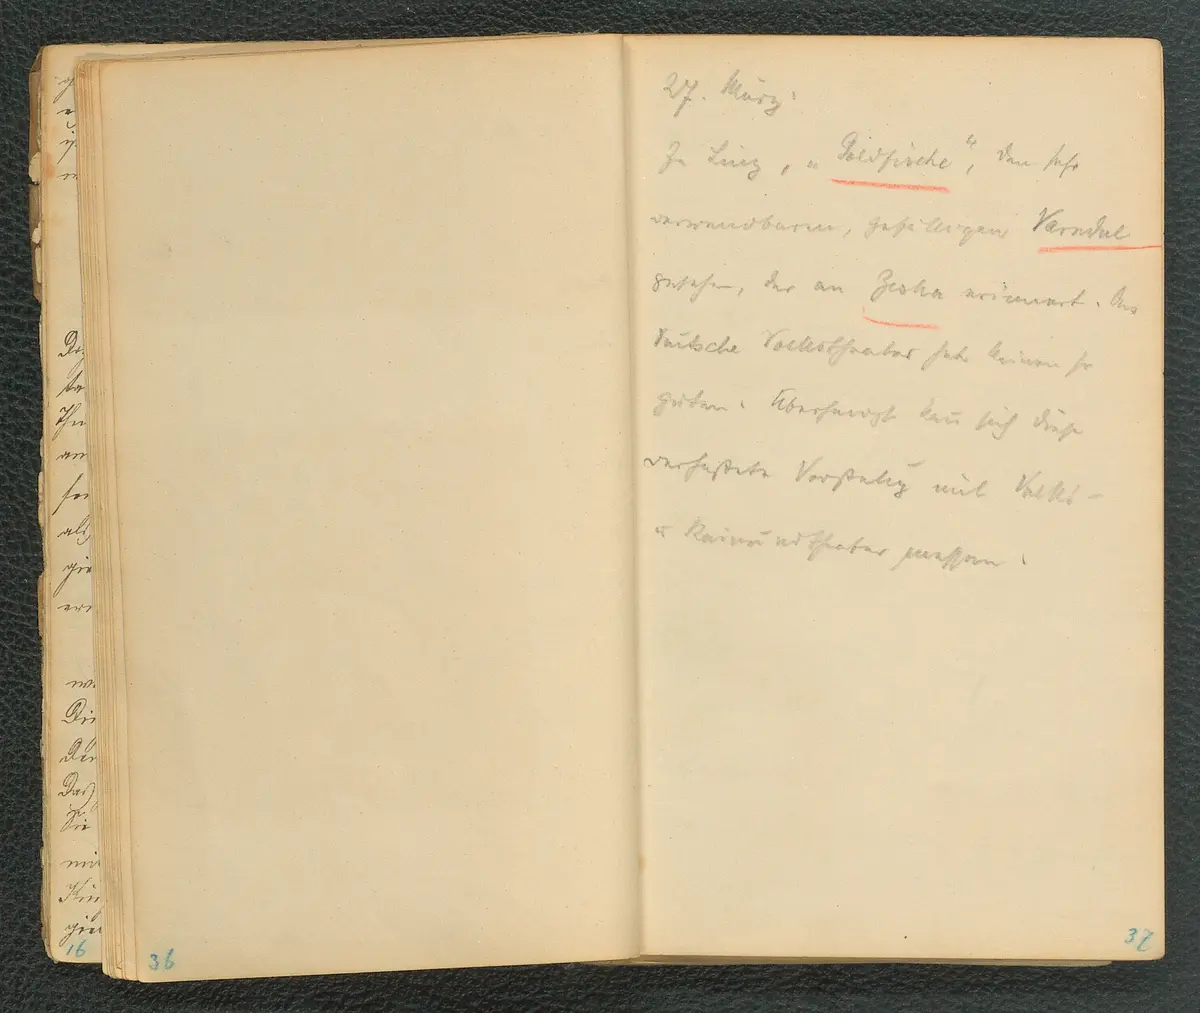 27. März.
In Linz, „Goldfische“, den sehr
verwendbaren, gefälligen Varndal
gesehen, der an Zeska erinnert. Das
Deutsche Volkstheater hat keinen so
guten. Überhaupt kan sich diese
Vorstelug mit Volks-
u Raimundtheater messen.
16
36
37